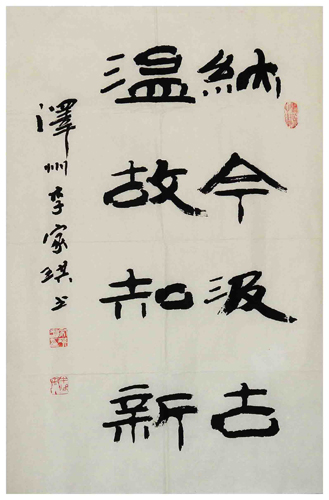 納今汲古
温故知新
澤州李家琪书